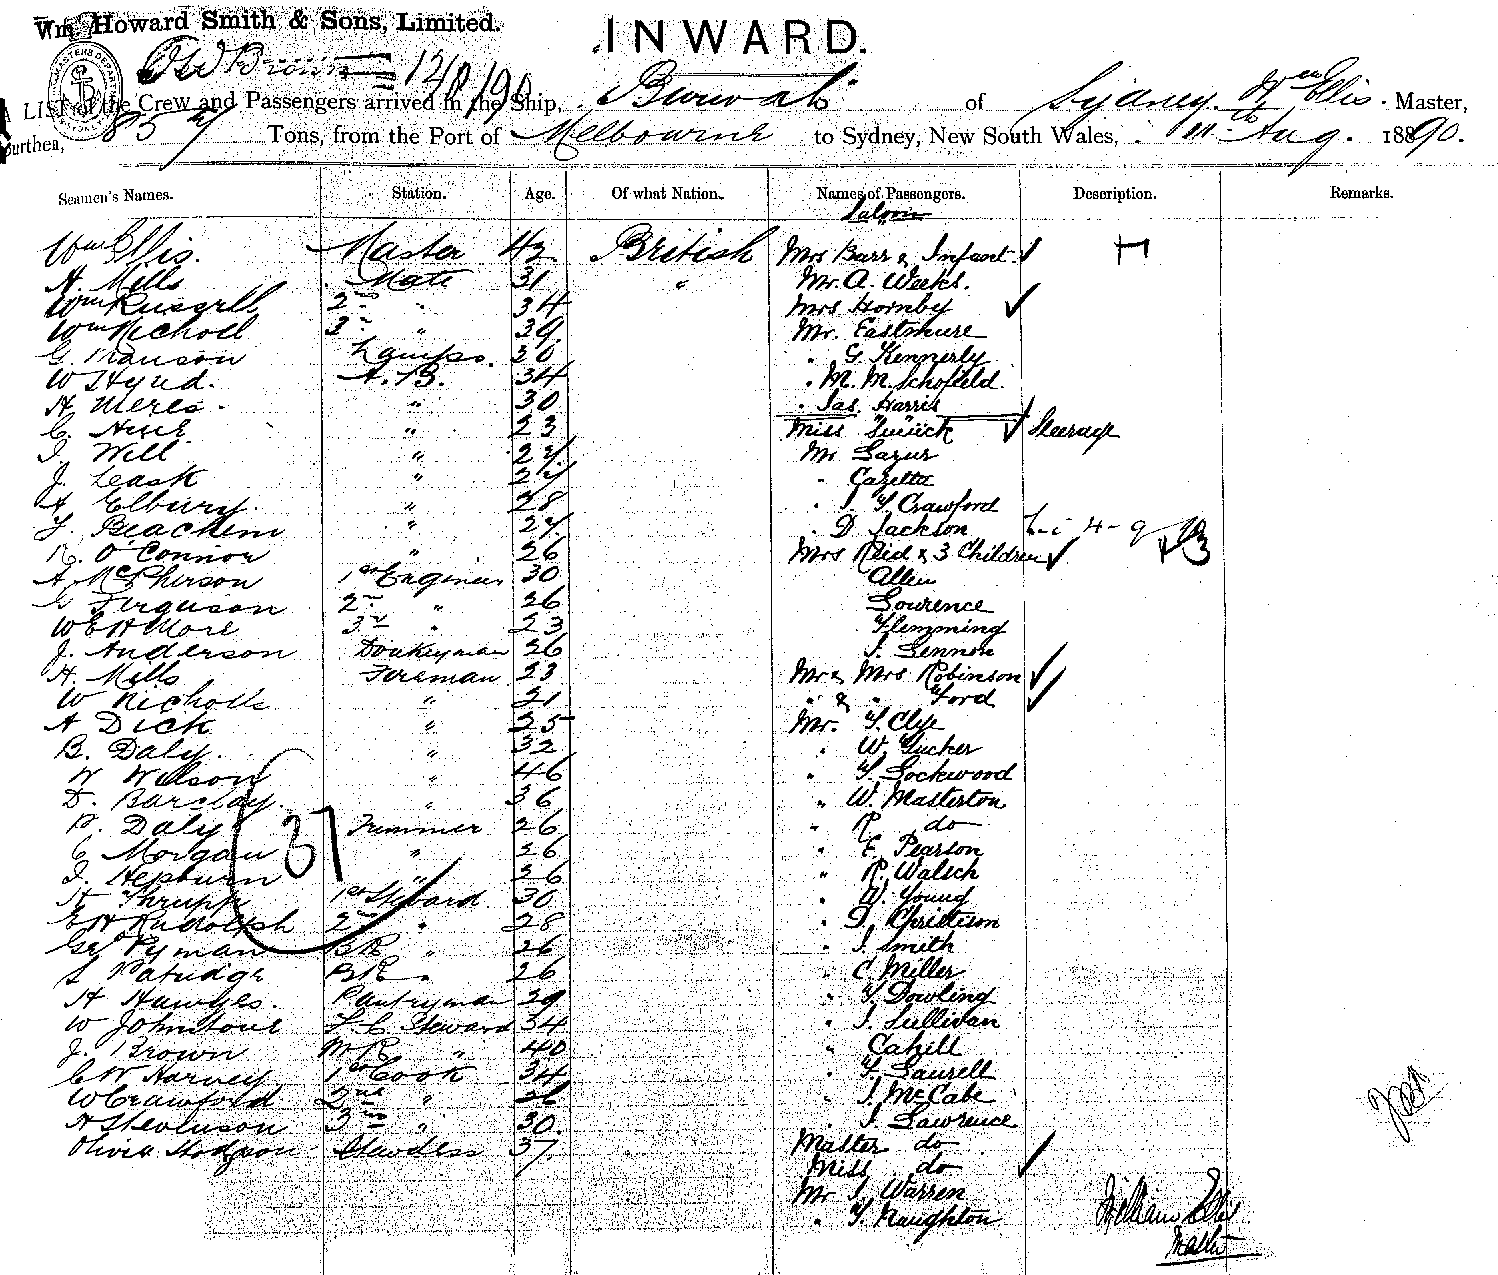 Wm. Howard Smith & Sons, Limited.
INWARD.
A LIST of the Crew and Passengers arrived in the Ship, Burwah of Sydney. Wm Ellis. Master,
Burthen, 857 Tons, from the Port of Melbourne to Sydney, New South Wales, Aug. 1890.
Seamen's Names. Station. Age. Of what Nation. Names of Passengers. Description. Remarks.
Saloon
Wm Ellis. Master 42 British Mrs Barr & Infant
H. Mills Mate 31 " Mr. A. Weeks.
Wm Russell 2nd " 34 Mrs Hornby
Wm Nicholl 3rd " 39 Mr. Eastmure
G. Manson Lamps. 30 " G. Kennerly
W Hynd. A.B. 34 " M. M. Schofield
H. Meres. " 30 " Jas. Harris
C. " 23 Miss Steerage
J. Will " 27 Mr
J. Leask " 27 "
A. Elbury. " 28 " Crawford
Beachem " 27 " D. Jackson
R. O'Connor " 26 Mrs Reid & 3 Children
A. McPherson 1st Engineer 30 Allen
Ferguson 2nd " 26 Lourence
W E H More 3rd " 23 Flemming
J. Anderson Donkeyman 26 Lennon
H. Mills Fireman 23 Mr & Mrs Robinson
W Nicholls " 21 " & " Ford
A Dick " 25 Mr. Clye
B. Daly. " 32 " W. Tucker
W Wilson " 46 " Lockwood
D. Barclay. " 36 " W. Masterton
P. Daly Trimmer 26 " R do
C Morgan " 26 " E. Pearson
J. Hepburn " 26 " R. Walsch
H Thrupp 1st Steward 30 " W. Young
E H Rudolph 2nd " 28 " D. Christison
Geo Pyman BR " 26 " J. Smith
S Patridge BR " 26 " C. Miller
H Hawkes. Pantryman 29 " Dowling
W Johnstone F. C. Steward 34 " J. Sullivan
J. Brown M R " 40 " Cahill
C W Harvey 1st Cook 34 " Laurell
W Crawford 2nd " 26 " J. McCabe
A Stevenson 3rd " 30. " J. Lawrence
Olivia Hodgson Stewdess 37 Master do
Miss do
Mr J. Warren
" Naughton
37
William Ellis
Master